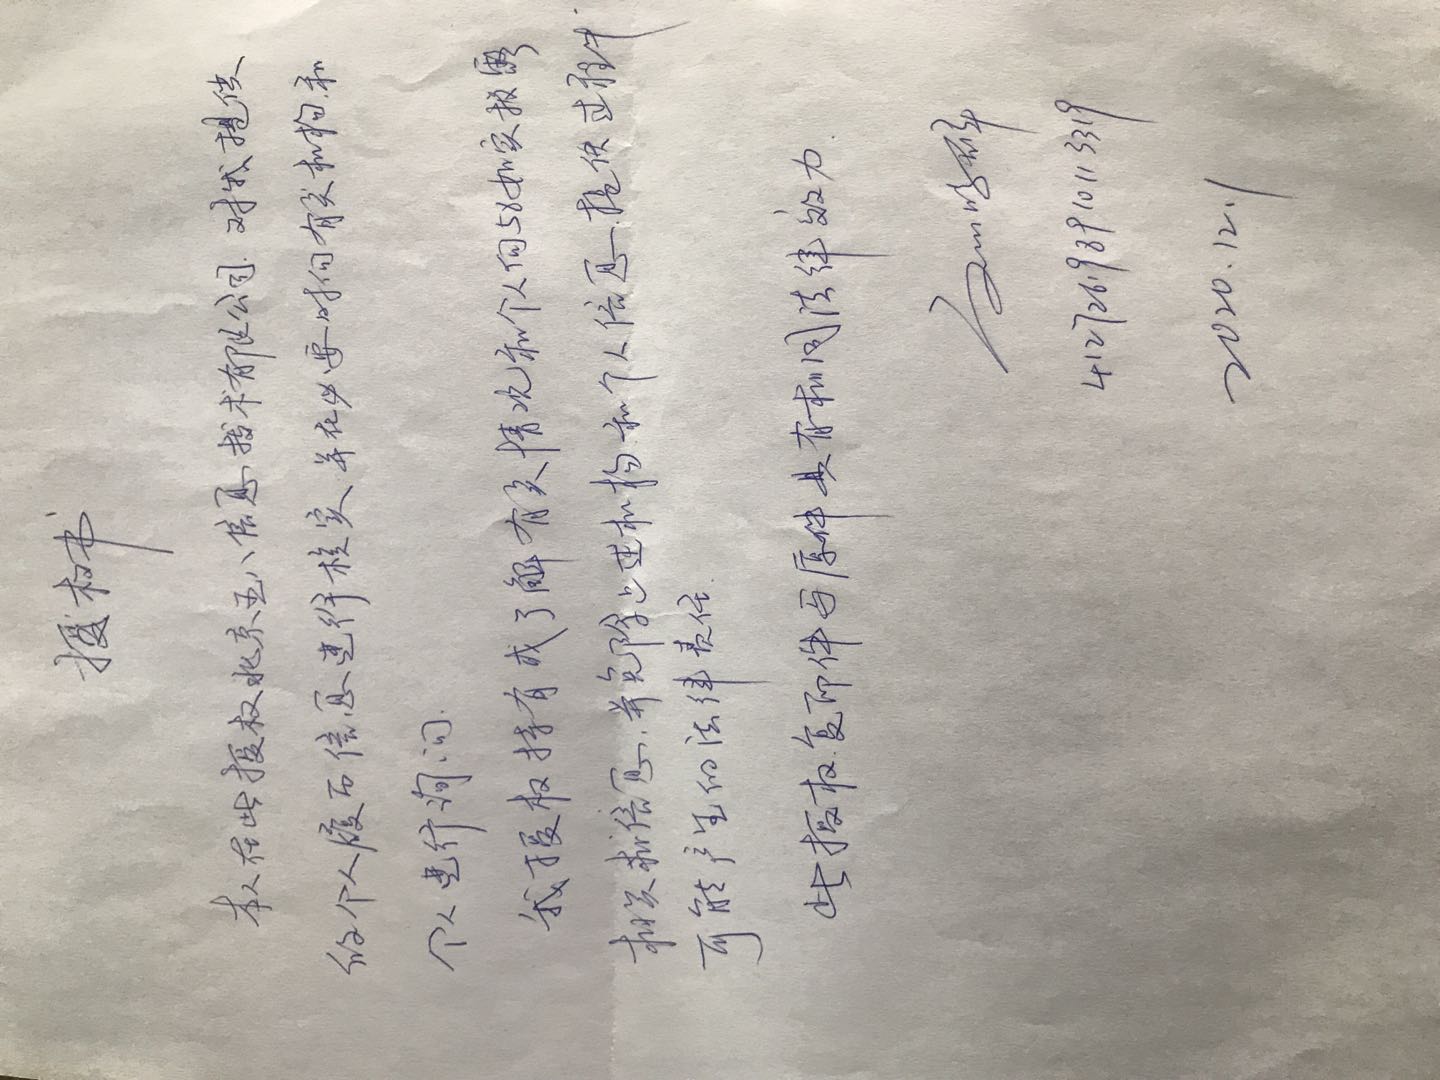 授权书
本人在此授权北京五八信息技术有限公司.对我提供
的个人履历信息进行核实.并在必要时向有关机构.和
个人进行询问.
我授权持有或了解有关情况和个人向58如实披露
相关信息.并免除上述机构和个人信息.提供过程中
可能产生的法律责任.
此授权.复印件与原件具有相同法律效力.
412726198910113319
2020.12.1